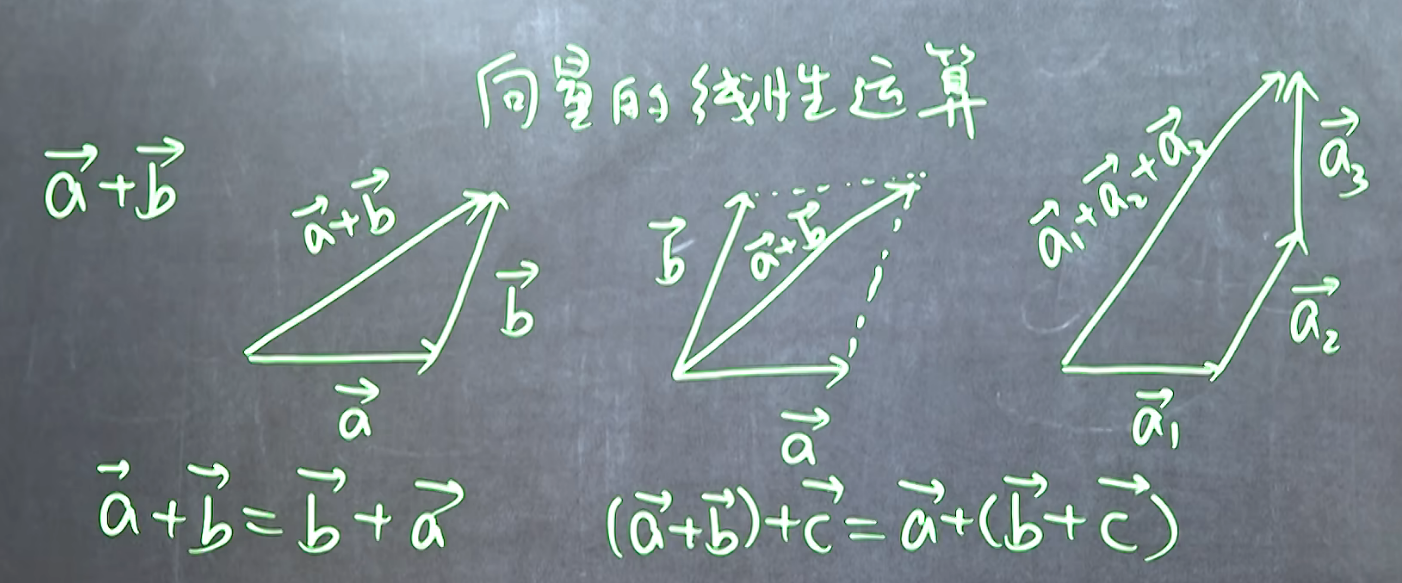 向量的线性运算
$\vec{a}+\vec{b}$
$\vec{a}+\vec{b}$
$\vec{b}$
$\vec{a}$
$\vec{b}$
$\vec{a}+\vec{b}$
$\vec{a}$
$\vec{a}_1+\vec{a}_2+\vec{a}_3$
$\vec{a}_3$
$\vec{a}_2$
$\vec{a}_1$
$\vec{a}+\vec{b}=\vec{b}+\vec{a}$
$(\vec{a}+\vec{b})+\vec{c}=\vec{a}+(\vec{b}+\vec{c})$